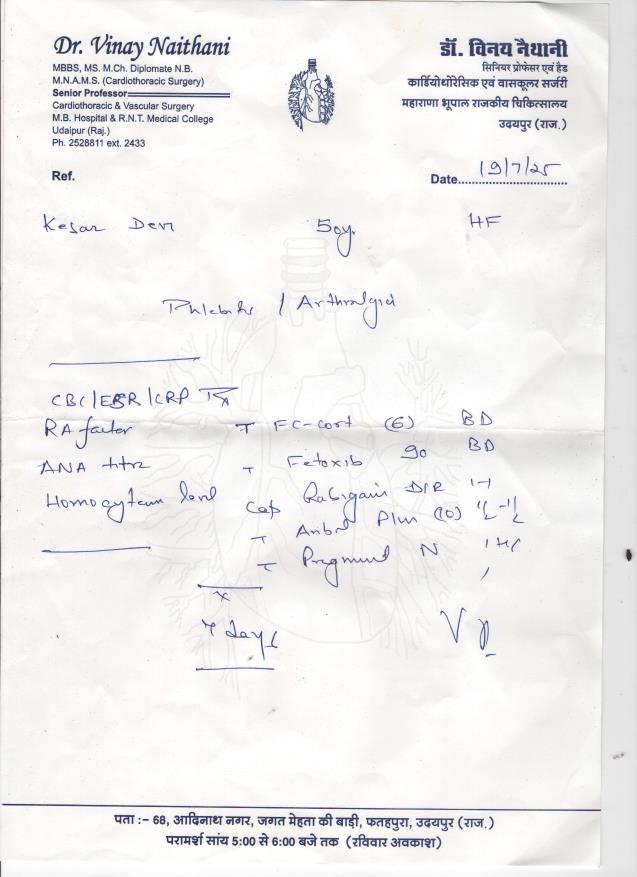 Dr. Vinay Naithani
MBBS, MS. M.Ch. Diplomate N.B.
M.N.A.M.S. (Cardiothoracic Surgery)
Senior Professor
Cardiothoracic & Vascular Surgery
M.B. Hospital & R.N.T. Medical College
Udaipur (Raj.)
Ph. 2528811 ext. 2433
डॉ. विनय नैथानी
सिनियर प्रोफेसर एवं हैड
कार्डियोथोरेसिक एवं वासकूलर सर्जरी
महाराणा भूपाल राजकीय चिकित्सालय
उदयपुर (राज.)
Ref.
Date 19/7/25
Kesar Devi 50y. HF
Phlebitis / Arthralgia
CBC/ESR/CRP
RA factor
T FC-Cort (6) BD
ANA titre
T Fetoxib 90 BD
Homocystein level
Cap Rabigain DSR 1-1
T Plus (10)
T N
x
7 days
पता :- 68, आदिनाथ नगर, जगत मेहता की बाड़ी, फतहपुरा, उदयपुर (राज.)
परामर्श सांय 5:00 से 6:00 बजे तक (रविवार अवकाश)